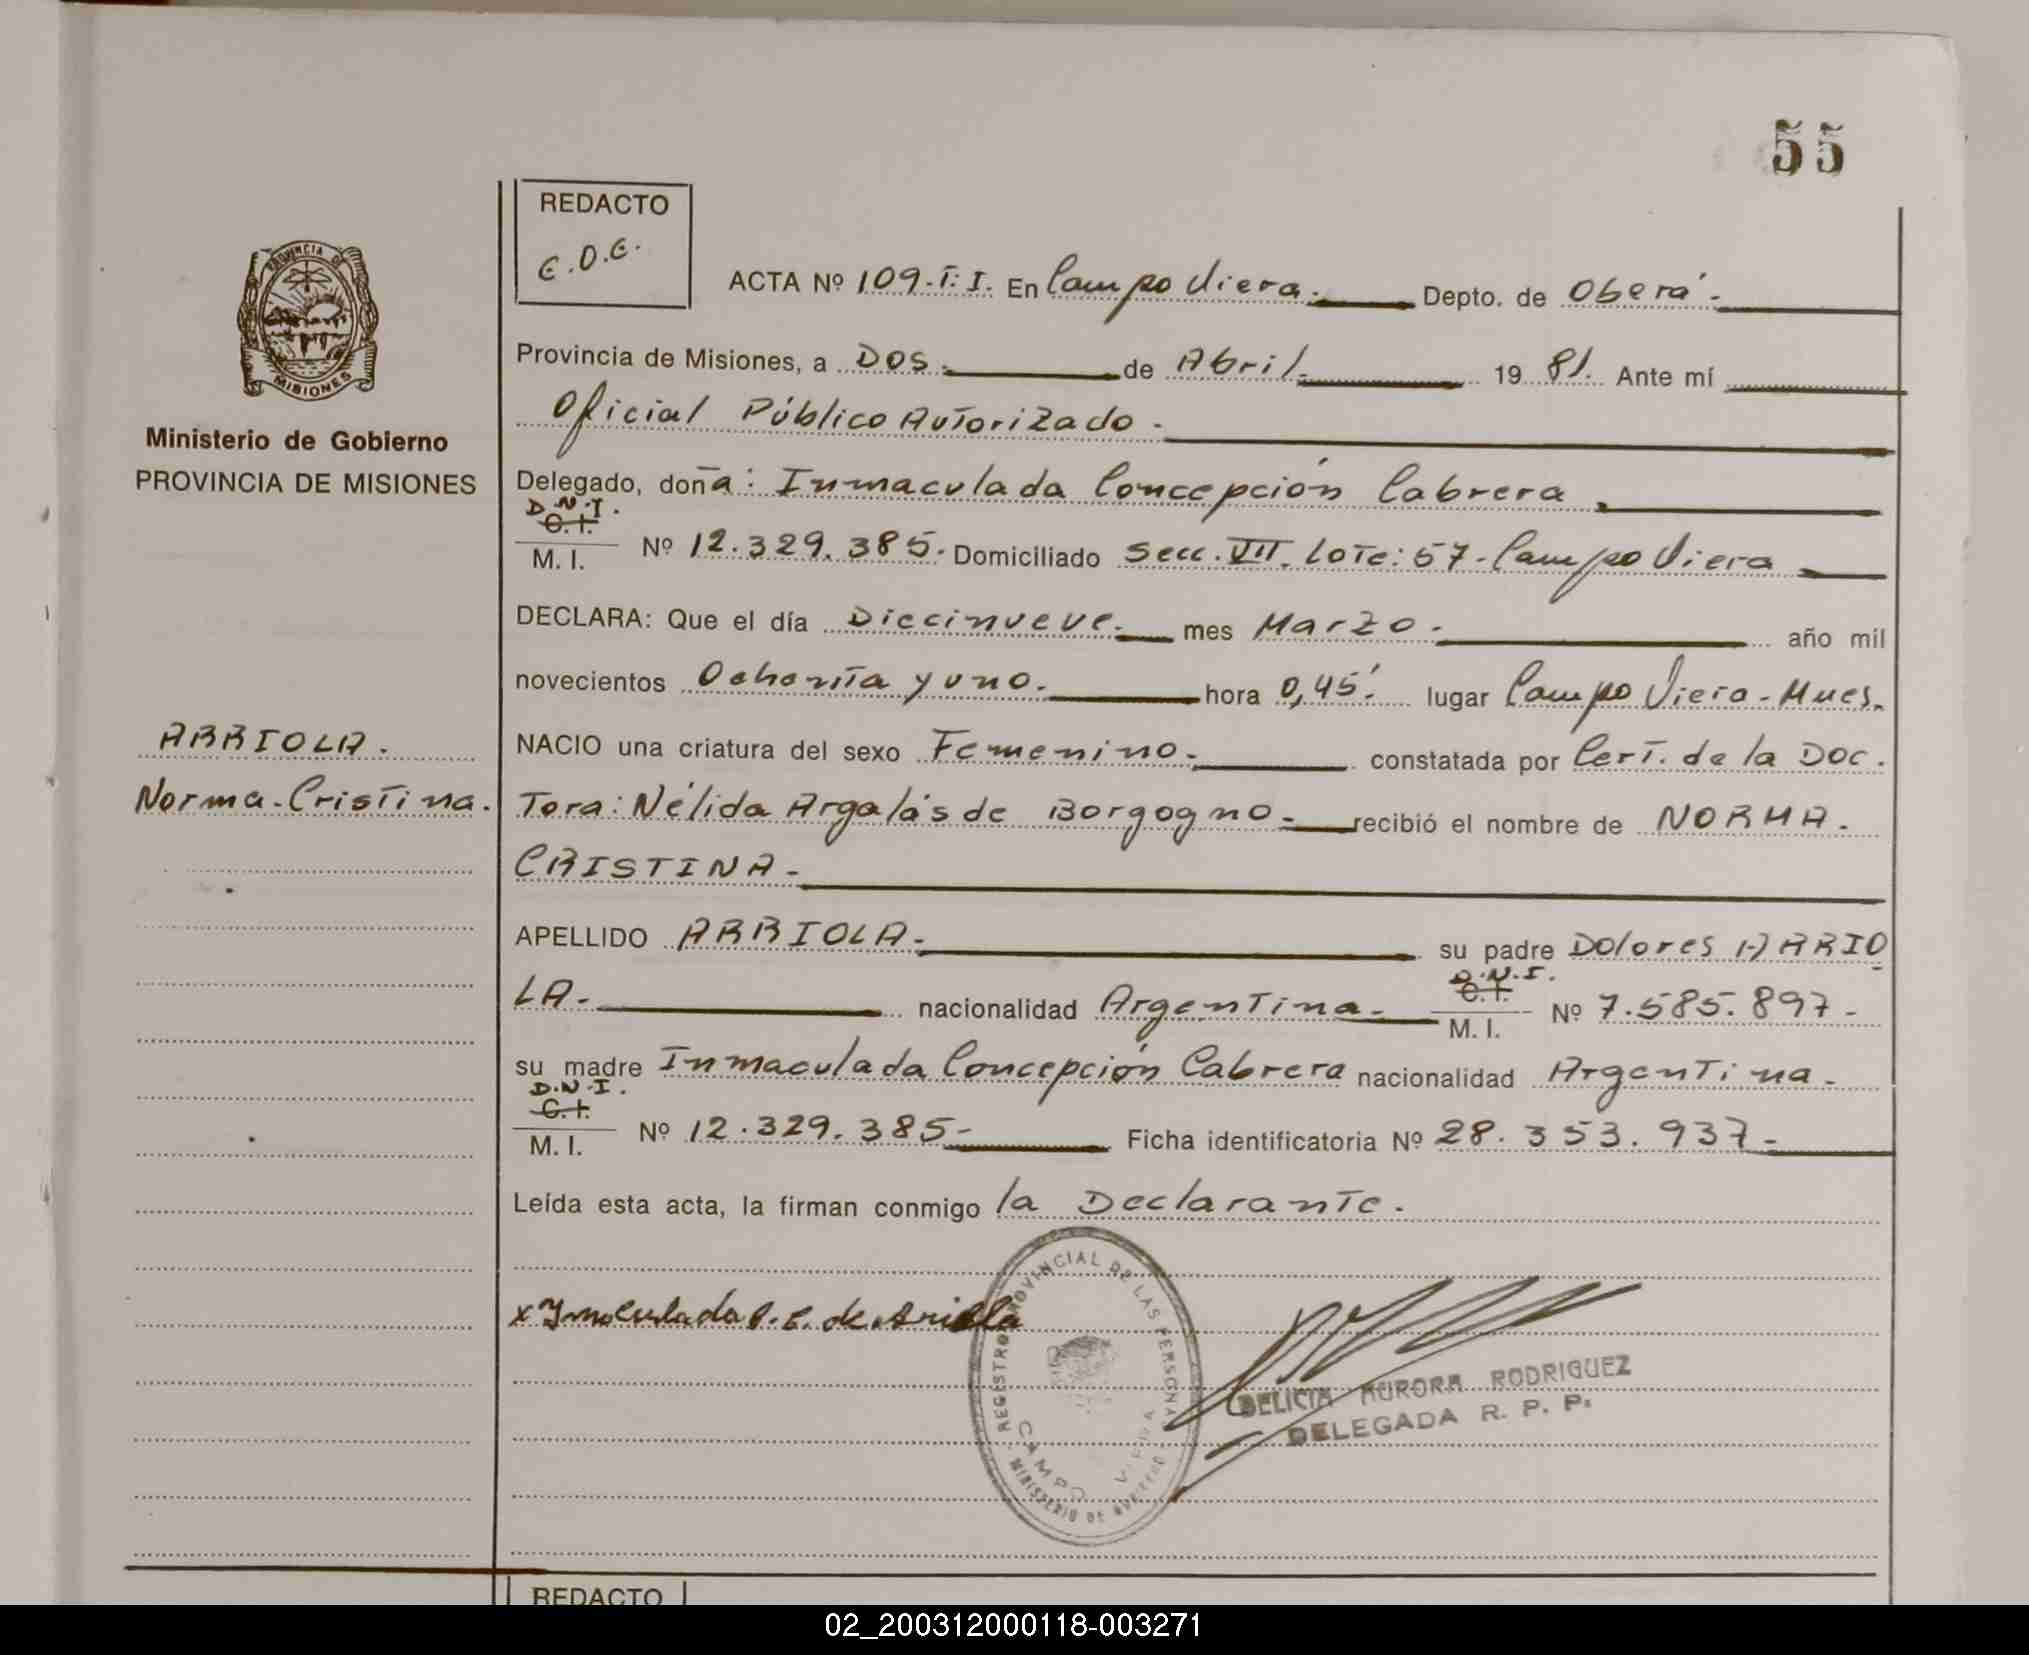 55
REDACTO
E.D.E.
PROVINCIA DE
MISIONES
Ministerio de Gobierno
PROVINCIA DE MISIONES
ACTA Nº 109.T:I. En Campo Viera. Depto. de Oberá.
Provincia de Misiones, a Dos. de Abril. 1981. Ante mí
Oficial Público Autorizado.
Delegado, doña: Inmaculada Concepción Cabrera.
D.N.I.
C.I.
M. I. Nº 12.329.385. Domiciliado Secc. VII. Lote: 57- Campo Viera
DECLARA: Que el día Diecinueve. mes Marzo. año mil
novecientos Ochenta y uno. hora 0,45'. lugar Campo Viera-Mnes.
ARRIOLA.
Norma-Cristina.
NACIO una criatura del sexo Femenino. constatada por Cert. de la Doc.
Tora: Nélida Argalás de Borgogno. recibió el nombre de NORMA.
CRISTINA.
APELLIDO ARRIOLA. su padre Dolores ARRIO
LA. nacionalidad Argentina. D.N.I. C.I. M. I. Nº 7.585.897-
su madre Inmaculada Concepción Cabrera nacionalidad Argentina.
D.N.I.
C.I.
M. I. Nº 12.329.385- Ficha identificatoria Nº 28.353.937-
Leída esta acta, la firman conmigo la Declarante.
x Inmaculada C. C. de Ariola
REGISTRO PROVINCIAL DE LAS PERSONAS
CAMPO VIERA
MINISTERIO DE GOBIERNO
DELICIA AURORA RODRIGUEZ
DELEGADA R. P. P.
REDACTO
02_200312000118-003271